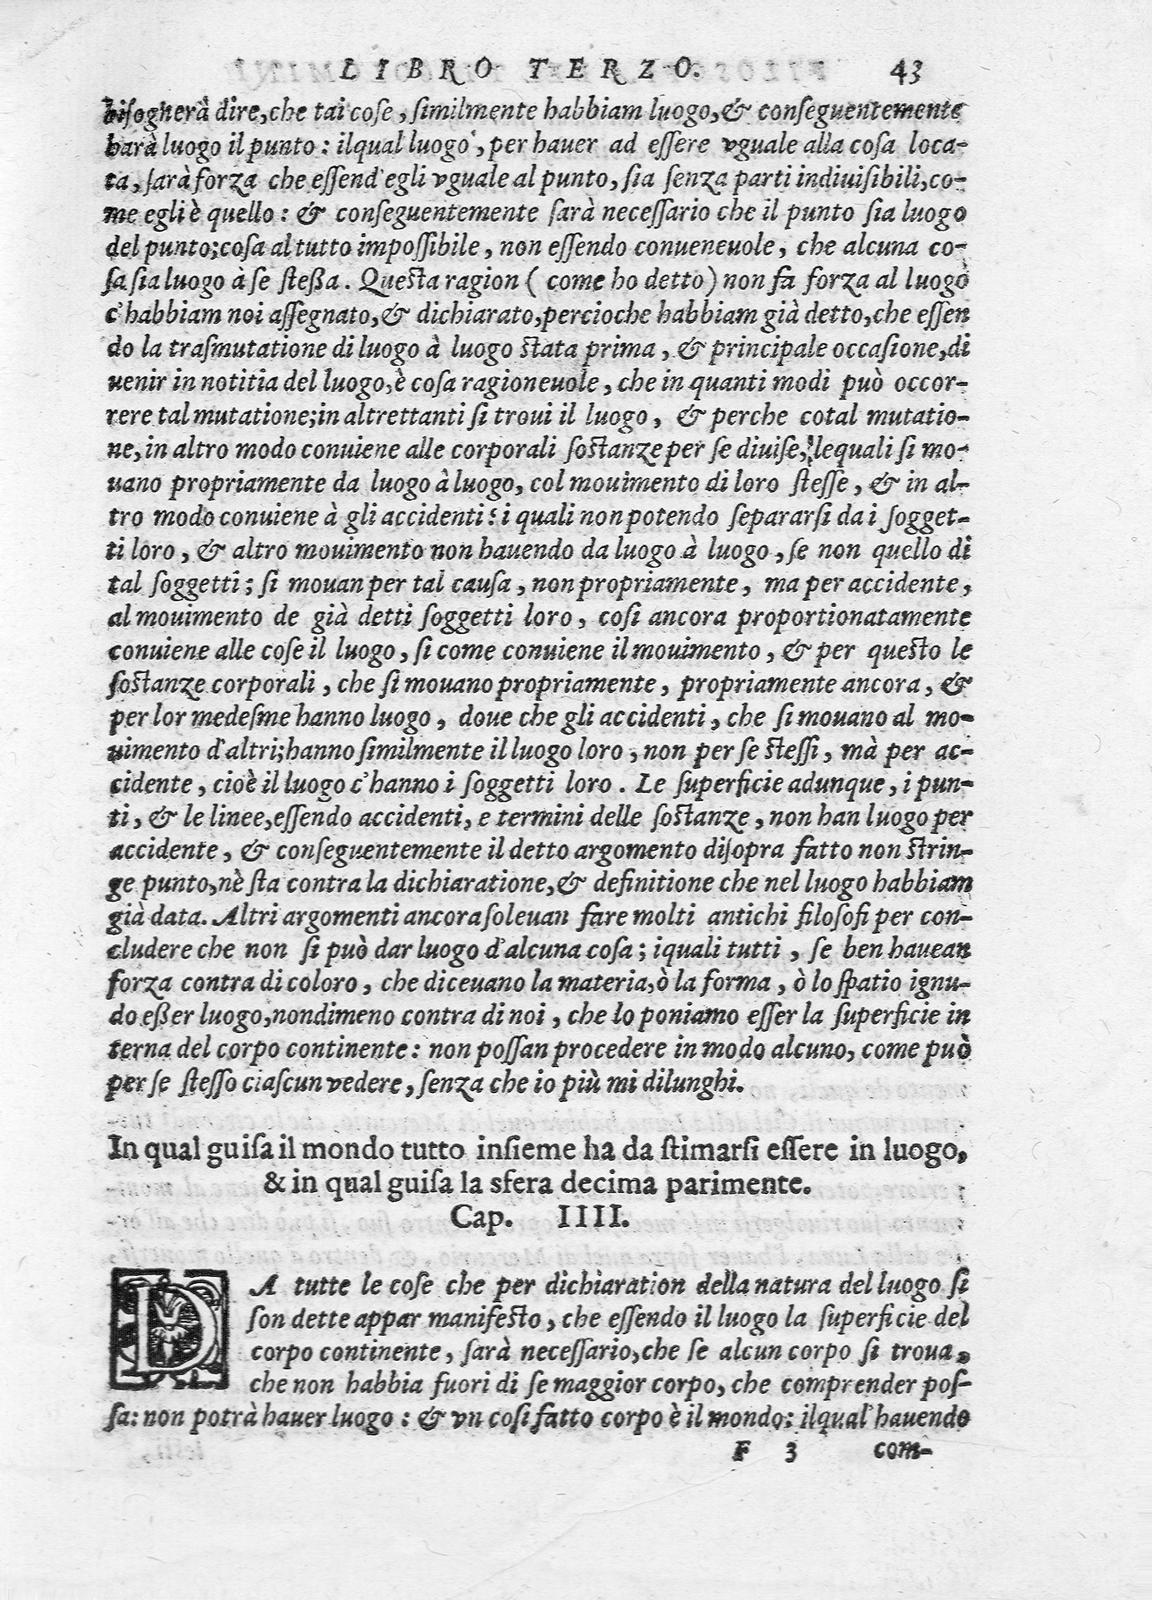 LIBRO TERZO. 43
biſogherà dire, che tai coſe, ſimilmente habbiam luogo, & conſeguentemente
harà luogo il punto: ilqual luogo, per hauer ad eſſere vguale alla coſa loca-
ta, ſarà forza che eſſend'egli vguale al punto, ſia ſenza parti indiuiſibili, co-
me egli è quello: & conſeguentemente ſarà neceſſario che il punto ſia luogo
del punto; coſa al tutto impoſſibile, non eſſendo conueneuole, che alcuna co-
ſa ſia luogo à ſe ſteßa. Queſta ragion ( come ho detto ) non fa forza al luogo
c'habbiam noi aſſegnato, & dichiarato, percioche habbiam già detto, che eſſen
do la traſmutatione di luogo à luogo ſtata prima, & principale occaſione, di
uenir in notitia del luogo, è coſa ragioneuole, che in quanti modi può occor-
rere tal mutatione; in altrettanti ſi troui il luogo, & perche cotal mutatio-
ne, in altro modo conuiene alle corporali ſoſtanze per ſe diuiſe, lequali ſi mo-
uano propriamente da luogo à luogo, col mouimento di loro ſteſſe, & in al-
tro modo conuiene à gli accidenti: i quali non potendo ſepararſi da i ſogget-
ti loro, & altro mouimento non hauendo da luogo à luogo, ſe non quello di
tal ſoggetti; ſi mouan per tal cauſa, non propriamente, ma per accidente,
al mouimento de già detti ſoggetti loro, coſi ancora proportionatamente
conuiene alle coſe il luogo, ſi come conuiene il mouimento, & per queſto le
ſoſtanze corporali, che ſi mouano propriamente, propriamente ancora, &
per lor medeſme hanno luogo, doue che gli accidenti, che ſi mouano al mo-
uimento d'altri; hanno ſimilmente il luogo loro, non per ſe ſteſſi, mà per ac-
cidente, cioè il luogo c'hanno i ſoggetti loro. Le ſuperficie adunque, i pun-
ti, & le linee, eſſendo accidenti, e termini delle ſoſtanze, non han luogo per
accidente, & conſeguentemente il detto argomento diſopra fatto non ſtrin-
ge punto, nè ſta contra la dichiaratione, & definitione che nel luogo habbiam
già data. Altri argomenti ancora ſoleuan fare molti antichi filoſofi per con-
cludere che non ſi può dar luogo d'alcuna coſa; iquali tutti, ſe ben hauean
forza contra di coloro, che diceuano la materia, ò la forma, ò lo ſpatio ignu-
do eßer luogo, nondimeno contra di noi, che lo poniamo eſſer la ſuperficie in
terna del corpo continente: non poſſan procedere in modo alcuno, come può
per ſe ſteſſo ciaſcun vedere, ſenza che io più mi dilunghi.
In qual guiſa il mondo tutto inſieme ha da ſtimarſi eſſere in luogo,
& in qual guiſa la sfera decima parimente.
Cap. IIII.
DA tutte le coſe che per dichiaration della natura del luogo ſi
ſon dette appar manifeſto, che eſſendo il luogo la ſuperficie del
corpo continente, ſarà neceſſario, che ſe alcun corpo ſi troua,
che non habbia fuori di ſe maggior corpo, che comprender poſ-
ſa: non potrà hauer luogo: & vn coſi fatto corpo è il mondo: ilqual hauendo
F 3 com-